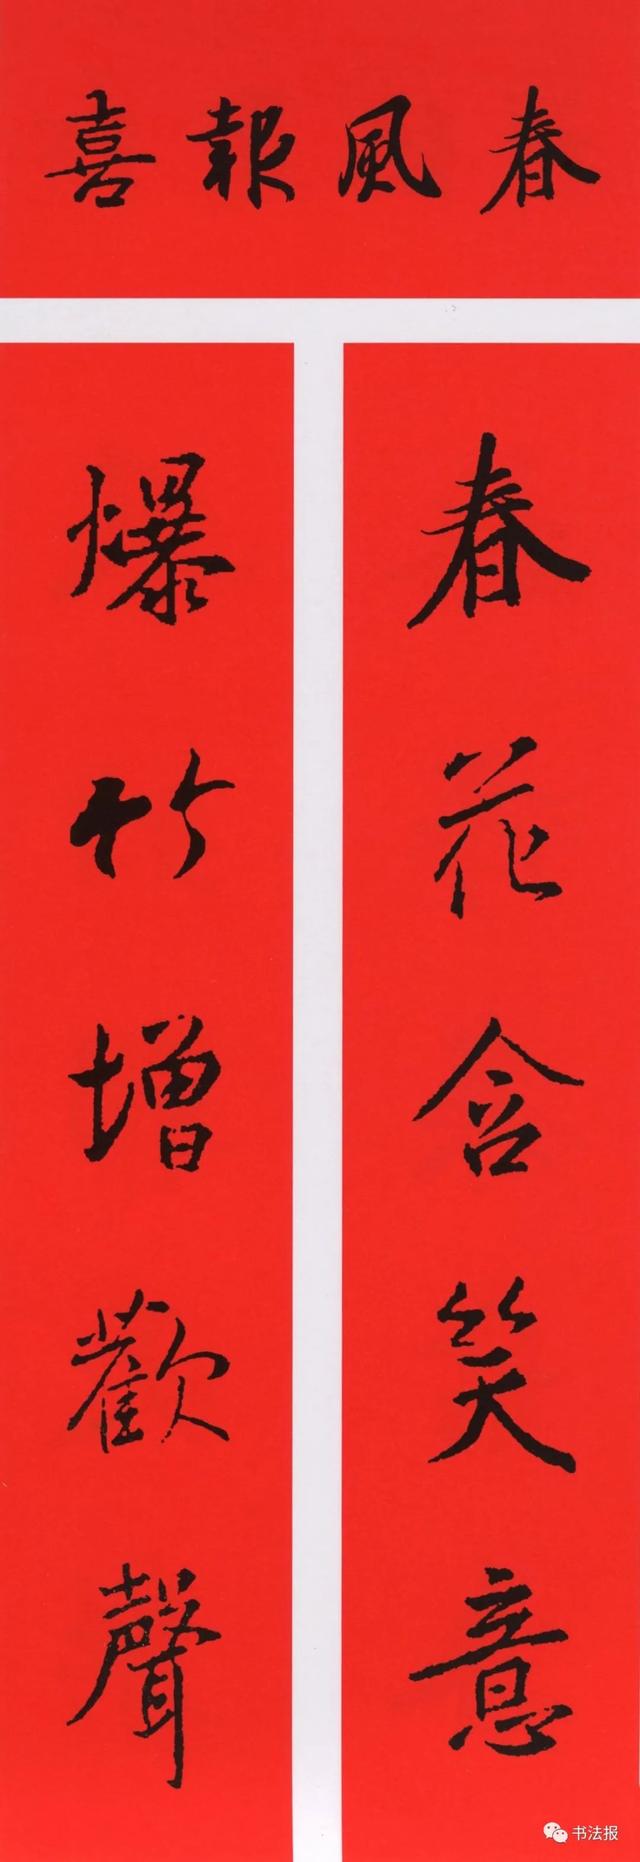 春風報喜
春花含笑意
爆竹增歡聲
书法报